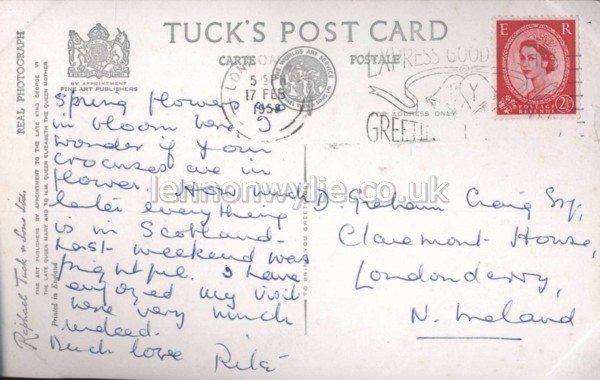 TUCK'S POST CARD
CARTE POSTALE
REAL PHOTOGRAPH
BY APPOINTMENT
FINE ART PUBLISHERS
FINE ART PUBLISHERS BY APPOINTMENT TO THE LATE KING GEORGE VI
THE LATE QUEEN MARY AND TO H.M. QUEEN ELIZABETH THE QUEEN MOTHER
Raphael Tuck & Sons Ltd.
Printed in England
LON
5
17 FEB
1958
THE WORLD'S ART SERVICE
EXPRESS GOOD
GREETI
FOR ADDRESS ONLY
E R
POSTAGE
REVENUE
2½
Spring flowers are
in bloom here. I
wonder if your
crocuses are in
flower. How much
later everything
is in Scotland.
Last weekend was
frightful. I have
enjoyed my visit
here very much
indeed.
Much love Rita
D. Graham Craig Esq.,
Claremont House,
Londonderry,
N. Ireland
lennonwylie.co.uk